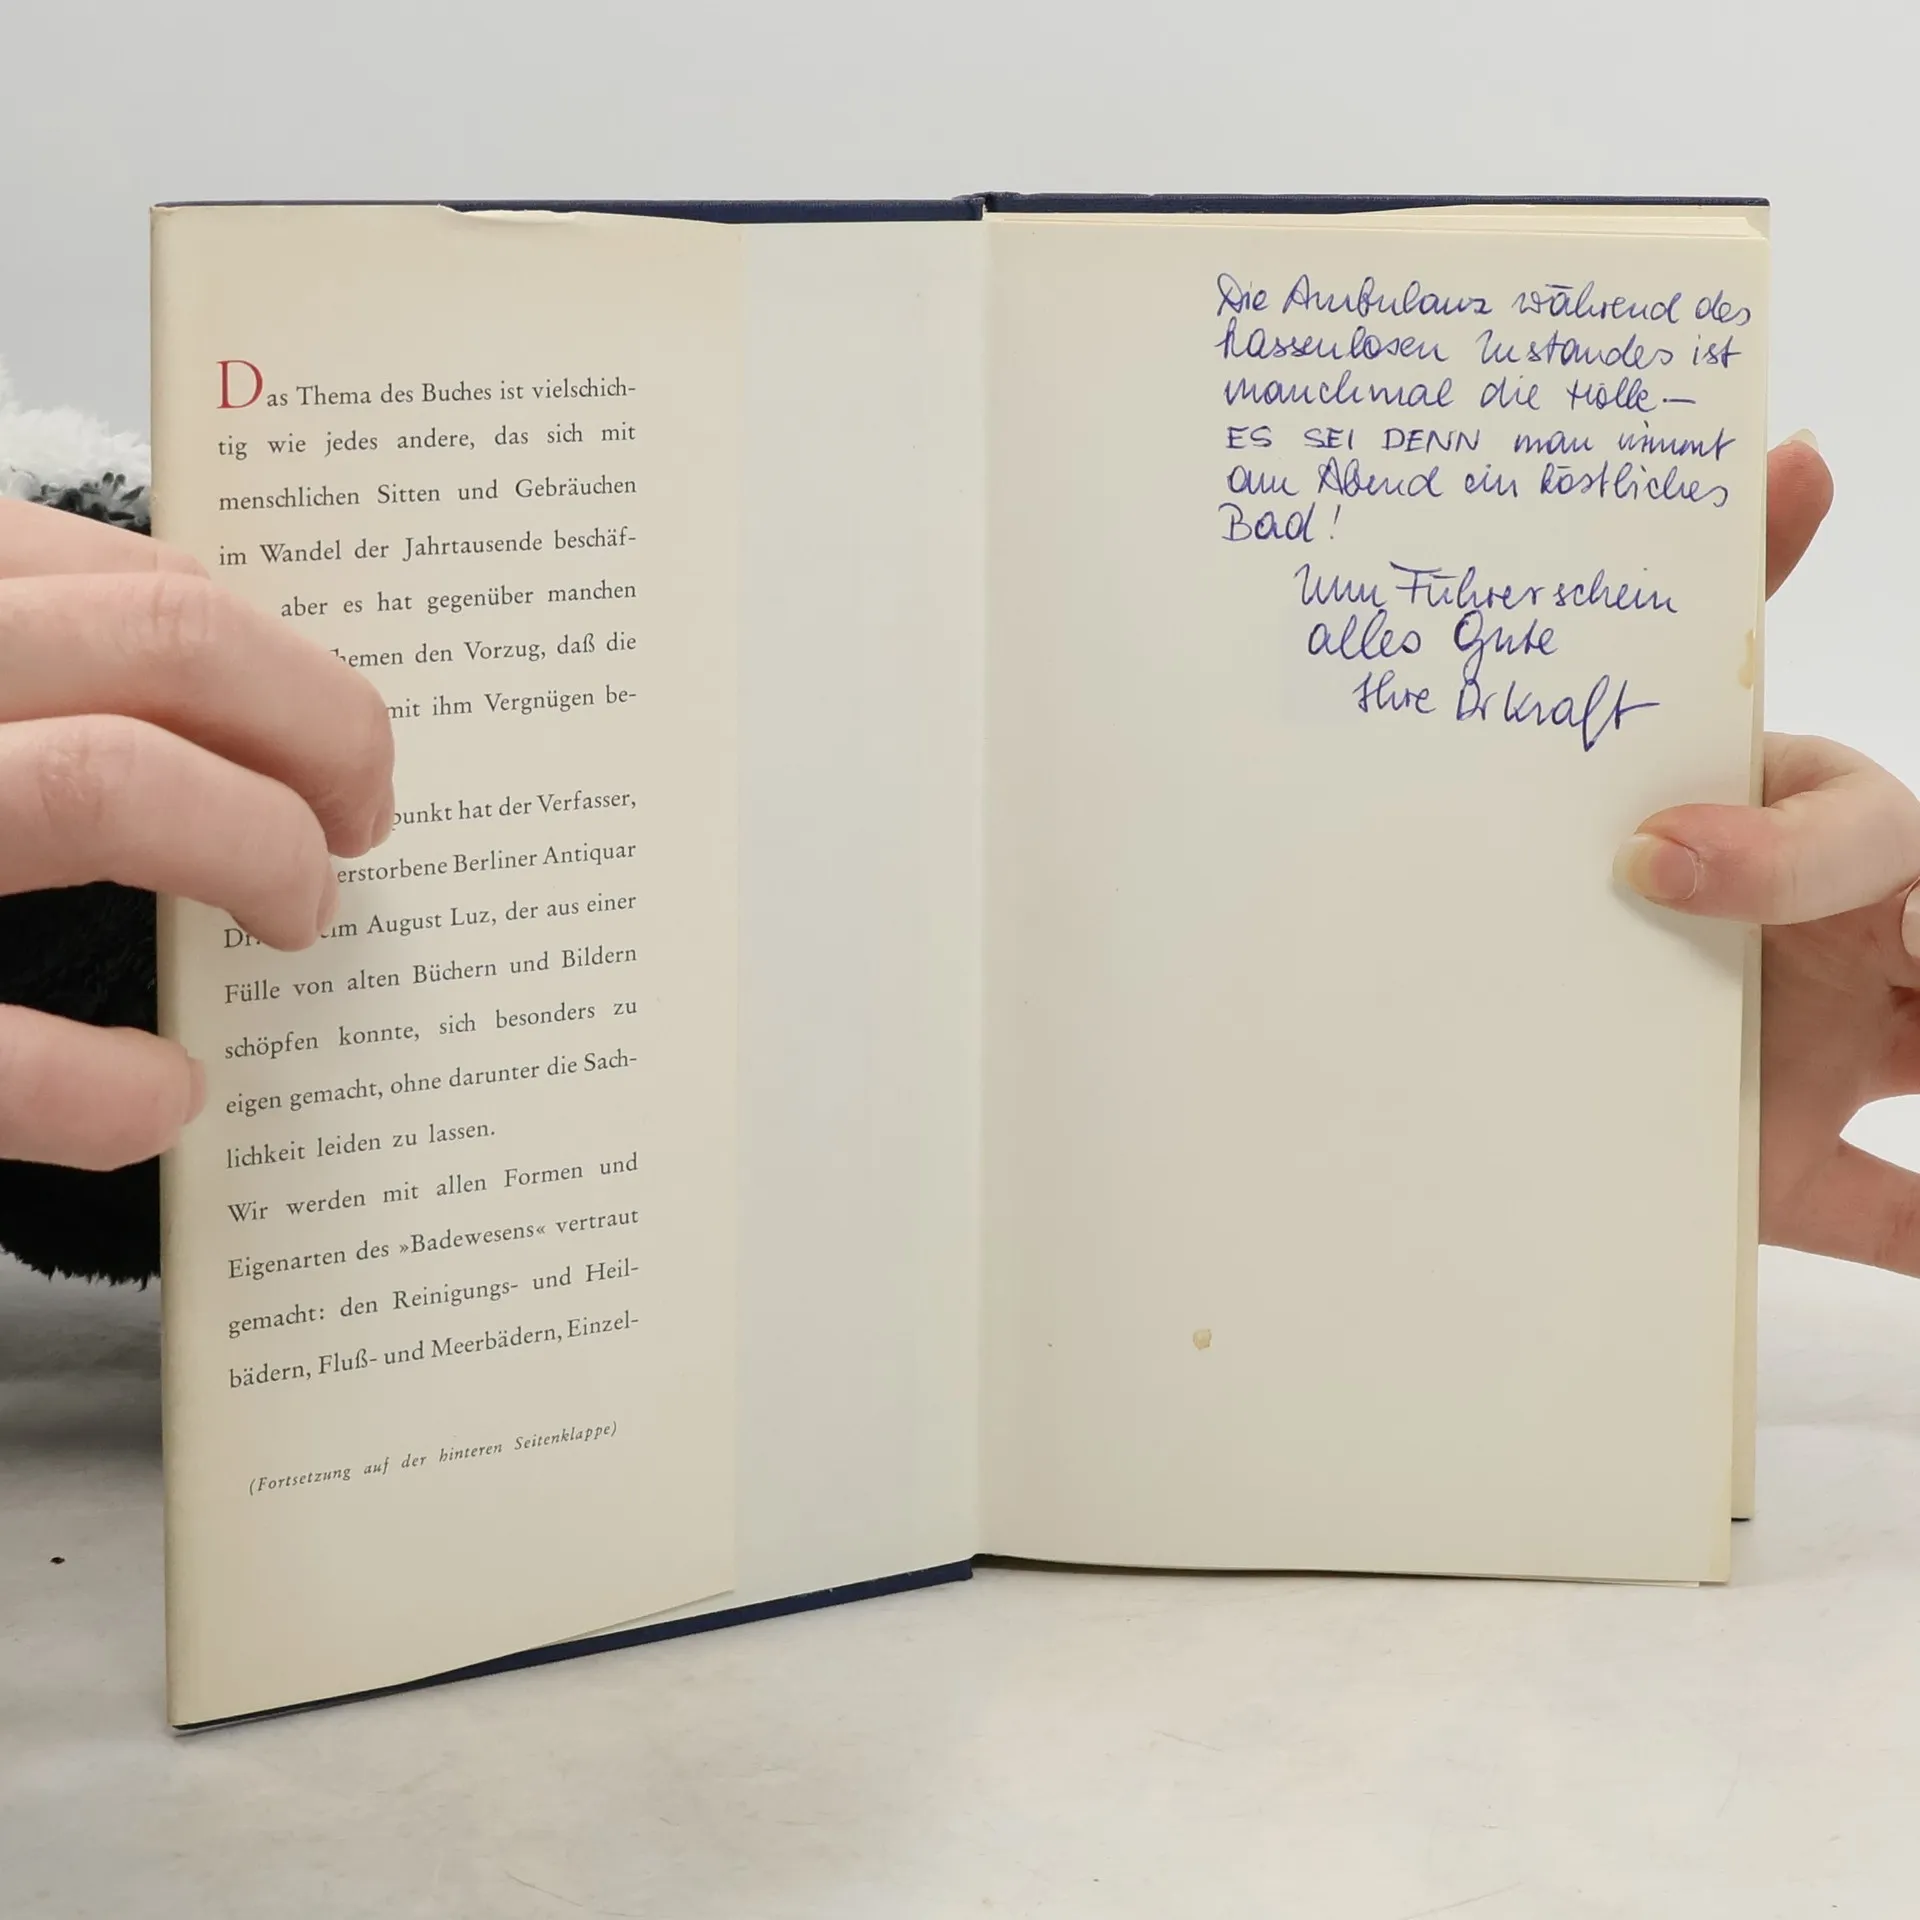 Das Thema des Buches ist vielschich-
tig wie jedes andere, das sich mit
menschlichen Sitten und Gebräuchen
im Wandel der Jahrtausende beschäf-
aber es hat gegenüber manchen
hemen den Vorzug, daß die
mit ihm Vergnügen be-
punkt hat der Verfasser,
erstorbene Berliner Antiquar
Dr. im August Luz, der aus einer
Fülle von alten Büchern und Bildern
schöpfen konnte, sich besonders zu
eigen gemacht, ohne darunter die Sach-
lichkeit leiden zu lassen.
Wir werden mit allen Formen und
Eigenarten des »Badewesens« vertraut
gemacht: den Reinigungs- und Heil-
bädern, Fluß- und Meerbädern, Einzel-
(Fortsetzung auf der hinteren Seitenklappe)
Die Ambulanz während des
kassenlosen Zustandes ist
manchmal die Hölle —
ES SEI DENN man nimmt
am Abend ein köstliches
Bad!
Zum Führerschein
alles Gute
Ihre Dr Kraft